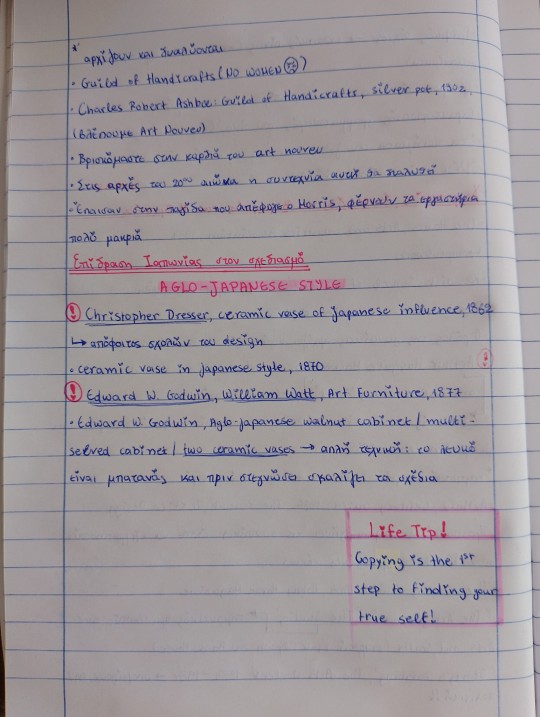 αρχίζουν και διαλύονται
• Guild of Handicrafts (NO WOMEN ☹)
• Charles Robert Ashbee: Guild of Handicrafts, silver pot, 1902
(βλέπουμε Art Nouveo)
• Βρισκόμαστε στην καρδιά του art nouveu
• Στις αρχές του 20ου αιώνα η συντεχνία αυτή θα διαλυθεί
• Έπεσαν στην παγίδα που απέφυγε ο Morris, φέρναν τα εργαστήρια
πολύ μακριά
Επίδραση Ιαπωνίας στον σχεδιασμό
AGLO-JAPANESE STYLE
! Christopher Dresser, ceramic vase of japanese influence, 1862
↳ απόφοιτος σχολών του design
• ceramic vase in japanese style, 1870
!
! Edward W. Godwin, William Watt, Art Furniture, 1877
• Edward W. Godwin, Aglo-japanese walnut cabinet / multi-
selved cabinet / two ceramic vases → απλή τεχνική: το λευκό
είναι μπατανάς και πριν στεγνώσει σκαλίζει τα σχέδια
Life Tip!
Copying is the 1st
step to finding your
true self!